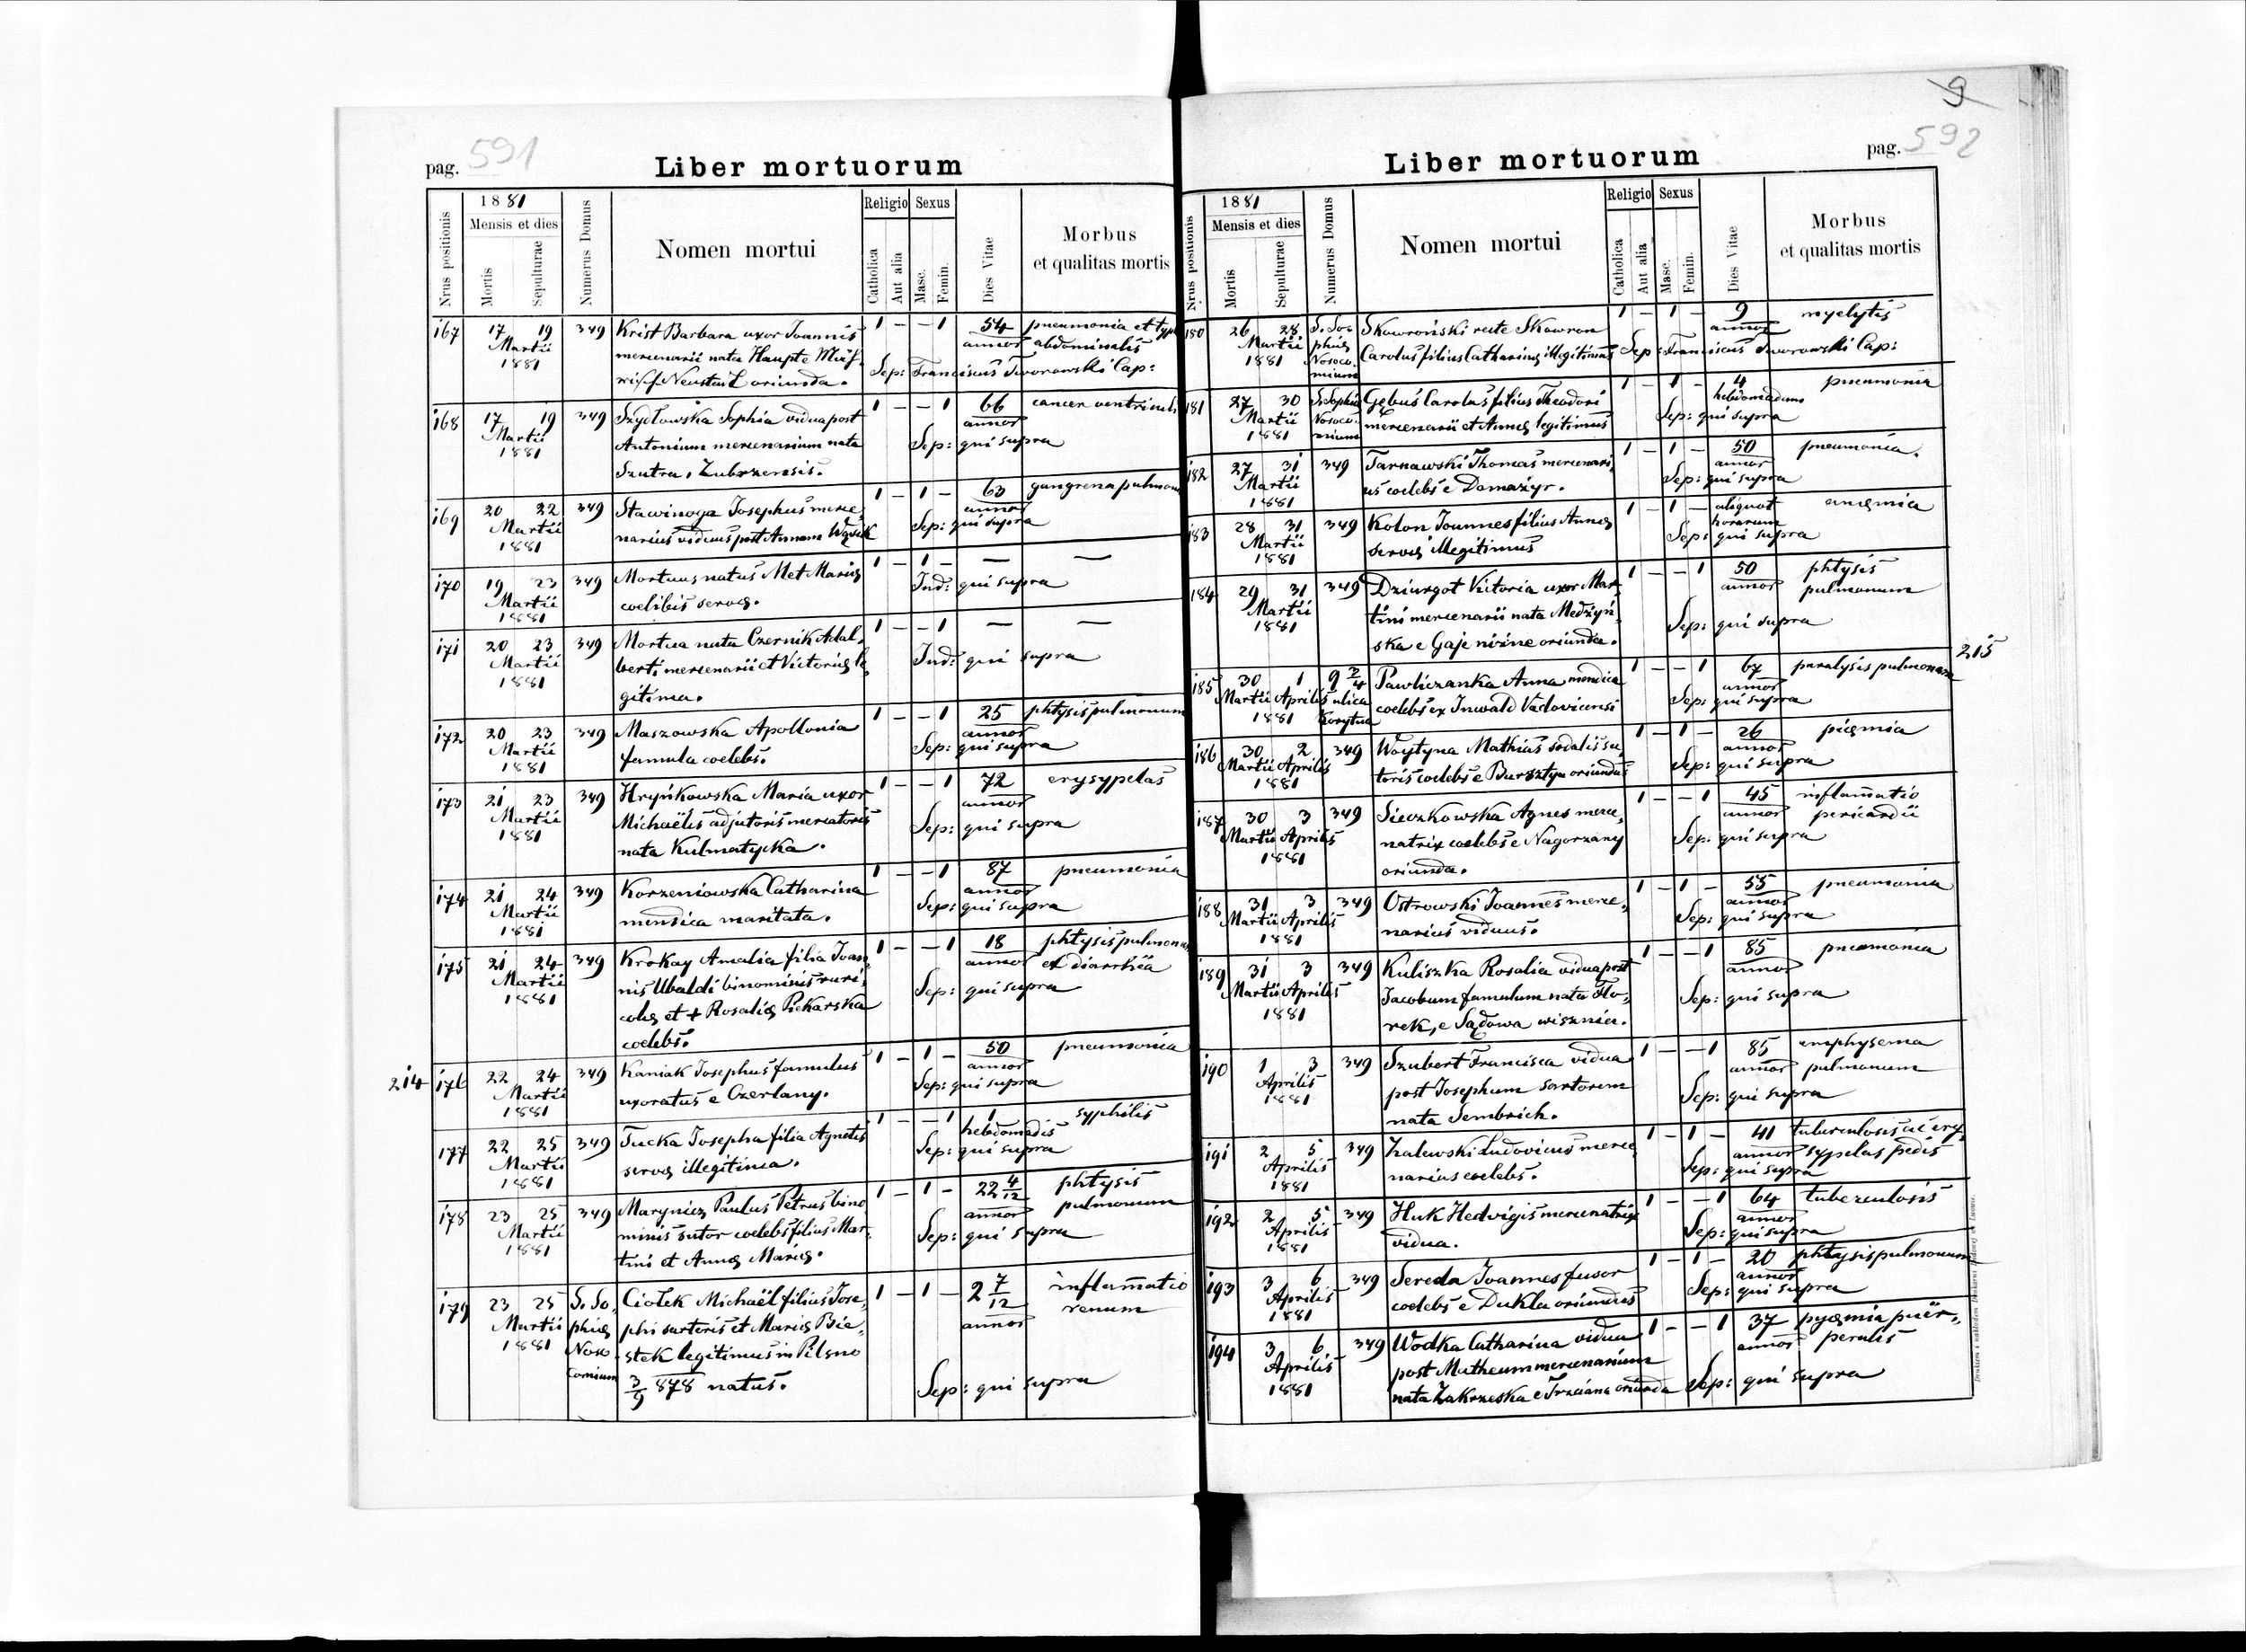 pag. 591
Liber mortuorum
Nrus positionis
1881
Mensis et dies
Mortis
Sepulturae
Numerus Domus
Nomen mortui
Religio
Catholica
Aut alia
Sexus
Masc.
Femin.
Dies Vitae
Morbus
et qualitas mortis
167 17 19 349 Krist Barbara uxor Joannis 1 - - 1 54 pneumonia et typh
Martii mercenarii nata Haupt e Mäh annor abdominalis
1881 risch Neustadt oriunda. Sep: Franciscus Tworowski Cap:
168 17 19 349 Szydłowska Sophia vidua post 1 - - 1 66 cancer ventriculi
Martii Antonium mercenarium nata annor
1881 Szutra, Zubrzensis. Sep: qui supra
169 20 22 349 Stawinoga Josephus merce, 1 - 1 - 63 gangrena pulmon
Martii narius viduus post Annam Wąsik annor
1881 Sep: qui supra
170 19 23 349 Mortuus natus Met Mariæ 1 - 1 - — —
Martii coelibis servæ. Ind: qui supra
1881
171 20 23 349 Mortua nata Czernik Adal, 1 - - 1 — —
Martii berti mercenarii et Victoriæ le Ind: qui supra
1881 gitima.
172 20 23 349 Maszowska Apollonia 1 - - 1 25 phtysis pulmonum
Martii famula coelebs. annor
1881 Sep: qui supra
173 21 23 349 Hryńkowska Maria uxor 1 - - 1 72 erysypelas
Martii Michaëlis adjutoris mercatoris annor
1881 nata Kulmatycka. Sep: qui supra
174 21 24 349 Korzeniowska Catharina 1 - - 1 87 pneumonia
Martii mendica maritata. annor
1881 Sep: qui supra
175 21 24 349 Krokay Amalia filia Joan, 1 - - 1 18 phtysis pulmonum
Martii nis Ubaldi binominis ruri, annor et diarrhëa
1881 colæ et + Rosaliæ Piekarska Sep: qui supra
coelebs.
214 176 22 24 349 Kaniak Josephus famulus 1 - 1 - 50 pneumonia
Martii uxoratus e Czerlany. annor
1881 Sep: qui supra
177 22 25 349 Tucka Josepha filia Agnetis 1 - - 1 1 syphilis
Martii servæ illegitima. hebdomadis
1881 Sep: qui supra
178 23 25 349 Marynicz Paulus Petrus bino 1 - 1 - 22 4/12 phtysis
Martii minis sutor coelebs filius Mar, annor pulmonum
1881 tini et Annæ Mariæ. Sep: qui supra
179 23 25 S. So, Ciołek Michaël filius Jose, 1 - 1 - 2 7/12 inflammatio
Martii phiæ phi sartoris et Mariæ Bie, annor renum
1881 Noso stek legitimus in Pilsno
comium 3/9 878 natus. Sep: qui supra
9
pag. 592
Liber mortuorum
Nrus positionis
1881
Mensis et dies
Mortis
Sepulturae
Numerus Domus
Nomen mortui
Religio
Catholica
Aut alia
Sexus
Masc.
Femin.
Dies Vitae
Morbus
et qualitas mortis
180 26 28 S. So, Skowroński recte Skowron 1 - 1 - 9 myelytis
Martii phiæ Carolus filius Catharinæ illegitimus annor
1881 Nosoco, mium Sep: Franciscus Tworowski Cap:
181 27 30 S. Sophiæ Gębuś Carolus filius Theodori 1 - 1 - 4 pneumonia
Martii Nosoco, mercenarii et Annæ legitimus hebdomadum
1881 mium Sep: qui supra
182 27 31 349 Tarnawski Thomas mercenari, 1 - 1 - 50 pneumonia.
Martii us coelebs e Domażyr. annor
1881 Sep: qui supra
183 28 31 349 Kolon Joannes filius Annæ 1 - 1 - aliquot anæmia
Martii servæ illegitimus horarum
1881 Sep: qui supra
184 29 31 349 Dziurgot Victoria uxor Mar, 1 - - 1 50 phtysis
Martii tini mercenarii nata Medżyń, annor pulmonum
1881 ska e Gaje niżne oriunda. Sep: qui supra
215
185 30 1 9 2/4 Pawliczanka Anna mendica 1 - - 1 67 paralysis pulmonum
Martii Aprilis ulica coelebs ex Inwald Vadovicensi annor
1881 Korytna Sep: qui supra
186 30 2 349 Woytyna Mathias sodalis su 1 - 1 - 26 piæmia
Martii Aprilis toris coelebs e Bursztyn oriundus annor
1881 Sep: qui supra
187 30 3 349 Sieczkowska Agnes merce, 1 - - 1 45 inflamatio
Martii Aprilis natrix coelebs e Nagorzany annor pericardii
1881 oriunda. Sep: qui supra
188 31 3 349 Ostrowski Joannes merce, 1 - 1 - 55 pneumonia
Martii Aprilis narius viduus. annor
1881 Sep: qui supra
189 31 3 349 Kuliszka Rosalia vidua post 1 - - 1 85 pneomonia
Martii Aprilis Jacobum famulum nata Flo, annor
1881 rek, e Sądowa wisznia. Sep: qui supra
190 1 3 349 Szubert Francisca vidua 1 - - 1 85 emphysema
Aprilis post Josephum sartorem annor pulmonum
1881 nata Sembrich. Sep: qui supra
191 2 5 349 Zalewski Ludovicus merce 1 - 1 - 41 tuberculosis ac ery,
Aprilis narius coelebs. annor sypelas pedis
1881 Sep: qui supra
192 2 5 349 Huk Hedvigis mercenatrix 1 - - 1 64 tuberculosis
Aprilis vidua. annor
1881 Sep: qui supra
193 3 6 349 Sereda Joannes fusor 1 - 1 - 20 phtysis pulmonum
Aprilis coelebs e Dukla oriundus annor
1881 Sep: qui supra
194 3 6 349 Wodka Catharina vidua 1 - - 1 37 pyæmia puër,
Aprilis post Matheum mercenarium annor peralis
1881 nata Zakrzeska e Trzciana oriunda Sep: qui supra